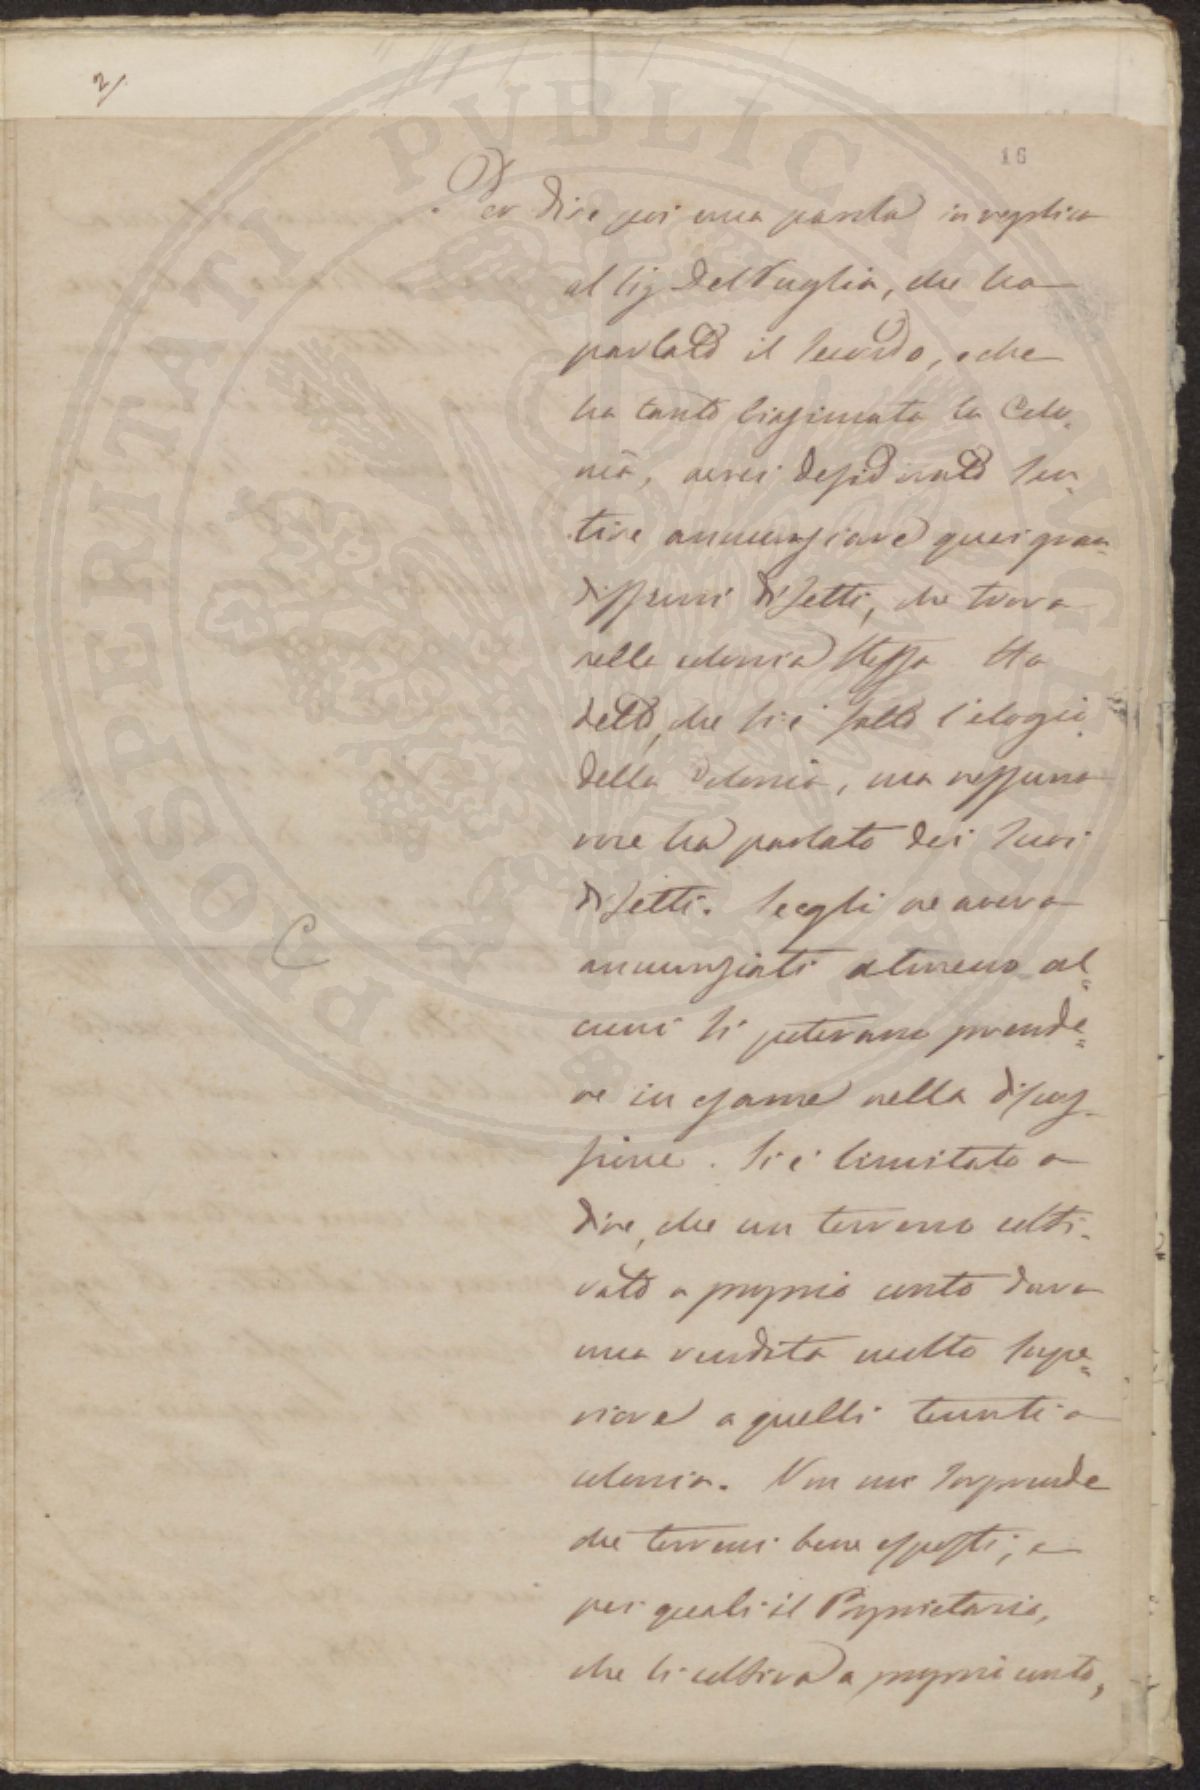 2/.
16
Per dire poi una parola in replica
al Sig. Del Puglia, che ha
parlato il secondo, e che
ha tanto biasimata la Colo-
nia, avrei desiderato sen-
tire annunziare quei gran-
dissimi difetti, che trova
nella colonia stessa. Ha
detto, che si è fatto l'elogio
della Colonia, ma nessuno
ore ha parlato dei suoi
difetti. Se egli ne aveva
annunziati almeno al=
cuni si potevano prende=
re in esame nella discus-
sione. Si è limitato a
dire, che un terreno colti-
vato a proprio conto dava
una rendita molto supe=
riore a quelli tenuti a
colonia. Non mi sorprende
che terreni bene esposti, e
pei quali il Proprietario,
che li coltiva a proprio conto,
C
PROSPERITATI PVBLICAE AVGENDAE